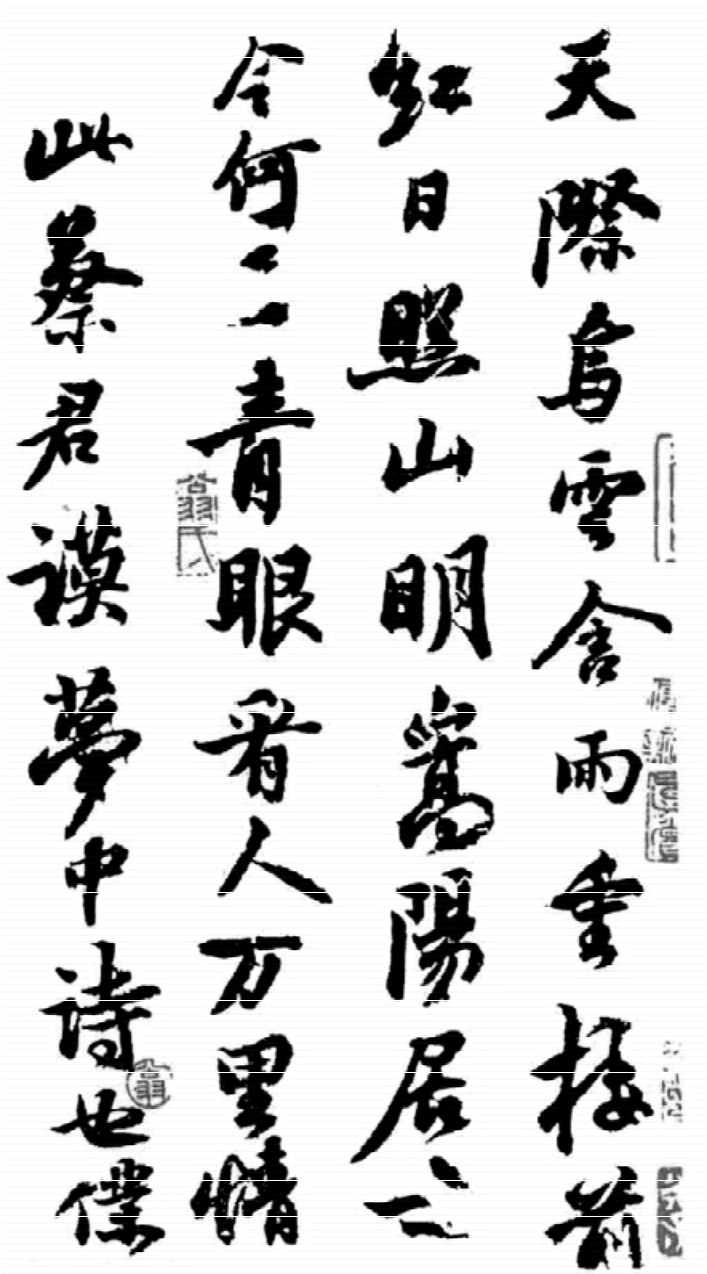 天際烏雲含雨重樓前
紅日照山明嵩陽居士
今何在青眼看人万里情
翁氏
此蔡君謨夢中詩也僕
翁